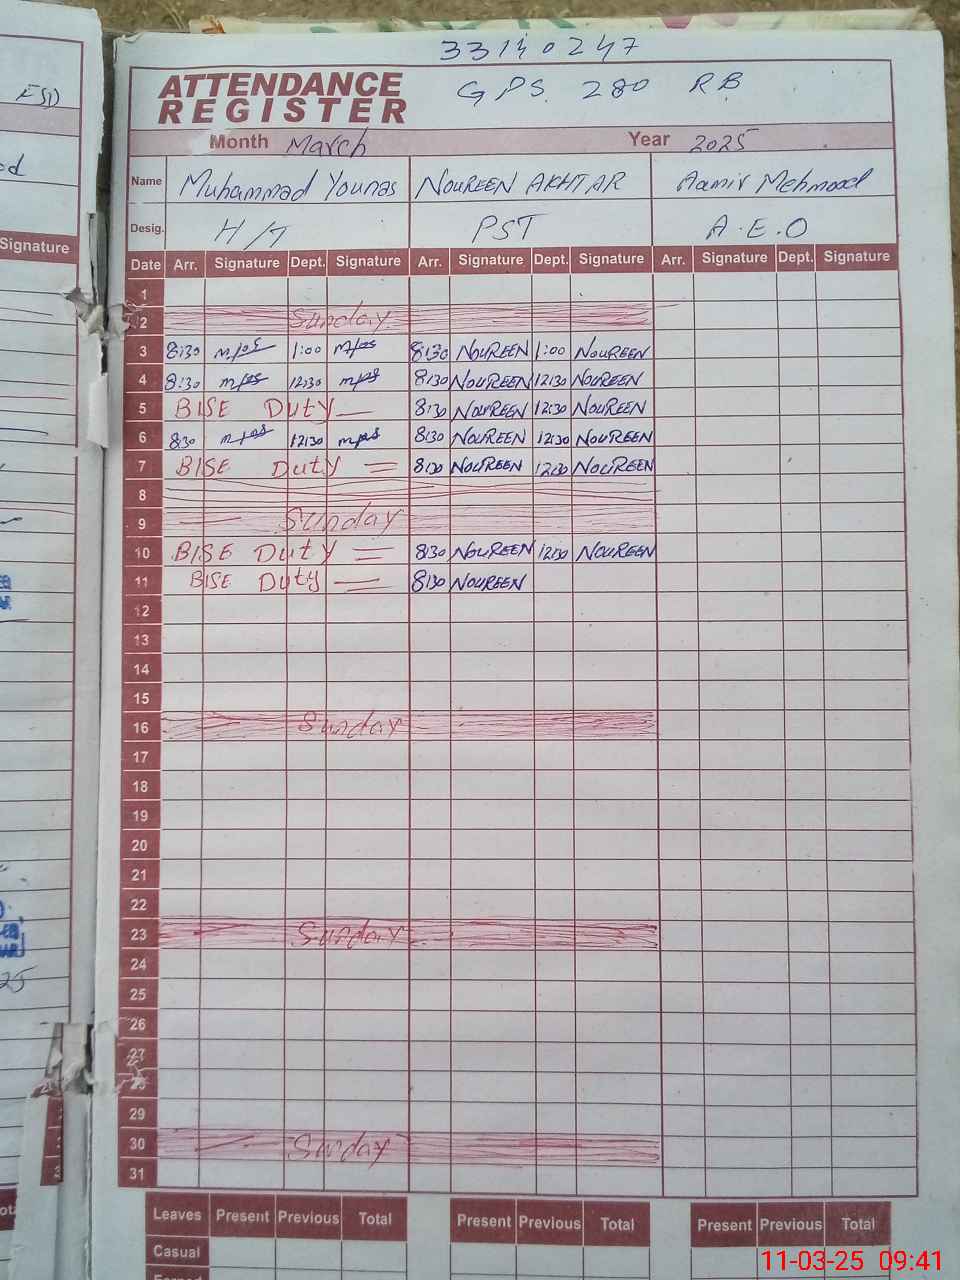 33140247
ATTENDANCE REGISTER GPS. 280 RB
Month March Year 2025
Name Muhammad Younas NOUREEN AKHTAR Aamir Mehmood
Desig. H/T PST A.E.O
Date Arr. Signature Dept. Signature Arr. Signature Dept. Signature Arr. Signature Dept. Signature
1
2 Sunday
3 8:30 1:00 8:30 NOUREEN 1:00 NOUREEN
4 8:30 12:30 8:30 NOUREEN 12:30 NOUREEN
5 BISE Duty 8:30 NOUREEN 12:30 NOUREEN
6 8:30 12:30 8:30 NOUREEN 12:30 NOUREEN
7 BISE Duty 8:30 NOUREEN 12:30 NOUREEN
8
9 Sunday
10 BISE Duty 8:30 NOUREEN 12:30 NOUREEN
11 BISE Duty 8:30 NOUREEN
12
13
14
15
16 Sunday
17
18
19
20
21
22
23 Sunday
24
25
26
27
28
29
30 Sunday
31
Leaves Present Previous Total Present Previous Total Present Previous Total
Casual
11-03-25 09:41
Signature